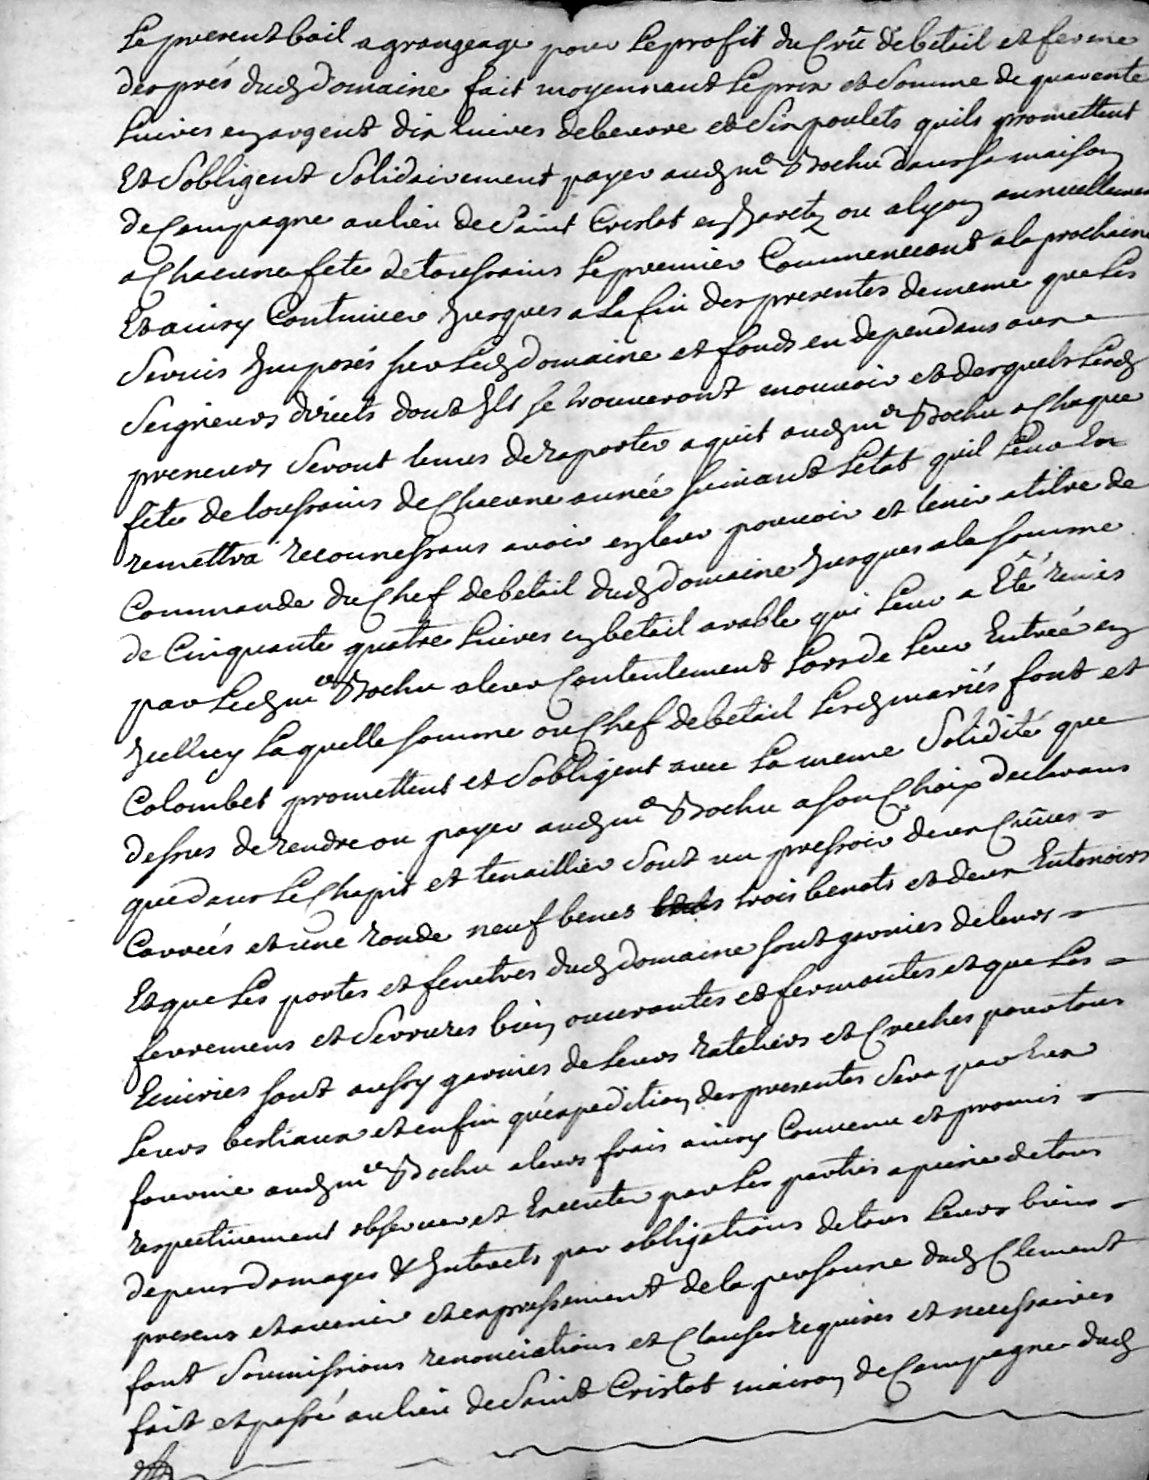 Le present bail a grangeage pour le profit du Crû de beteil et ferme
des prés dud domaine fait moyennant le prix et somme de quarente
Livres en argent dix livres de beurre et six poulets quils promettent
Et sobligent solidairement payer aud mr Bochu dans sa maison
de Campagne au lieu de saint Cristot en Jaretz ou a lyon annuellement
a Chacune fete de toussains le premier Commencant a la prochaine
Et ainsy Continuer jusques a la fin des presentes de meme que les
servis jmposés sur led domaine et fonds en dependans aux
seigneurs directs dont jls se trouveront mouvoir et desquels lesd
preneurs seront tenus de raporter aquit aud mr Bochu a Chaque
fete de toussains de Chacune année suivant letat quil leur En
remettra reconnessans avoir en leur pouvoir et tenir a titre de
Commande du Chef de betail dud domaine jusques a la somme
de Cinquante quatre livres en betail arable qui leur a Eté remis
par led mr Bochu a leur Contentement lors de leur Entrée en
laquelle somme ou Chef de betail lesd mariés font et
Colombet promettent et sobligent avec la meme solidité que
dessus de rendre ou payer aud mr Bochu a son Choix declarans
que dans le Chapit et tenaillier sont un pressoir deux Cuves
Carreés et une ronde neuf benes trois benots et deux Entonoirs
Et que les portes et fenetres dud domaine sont garnies de leurs
ferremens et serrures bien ouvrantes et fermantes et que les
Ecuries sont aussy garnies de leurs rateliers et Creches pour tous
Leurs bestiaux et enfin qu'expedition des presentes sera par Eux
fournie aud mr Bochu a leurs frais ainsy Convenu et promis
respectivement observer et Executer par les parties a peine de tous
depens domages & jnterets par obligations de tous leurs biens
presens et avenir et expressement de la personne dud Clement
font soumissions renonciations et Clauses requises et necessaires
fait et passé au lieu de saint Cristot maison de Campagne dud